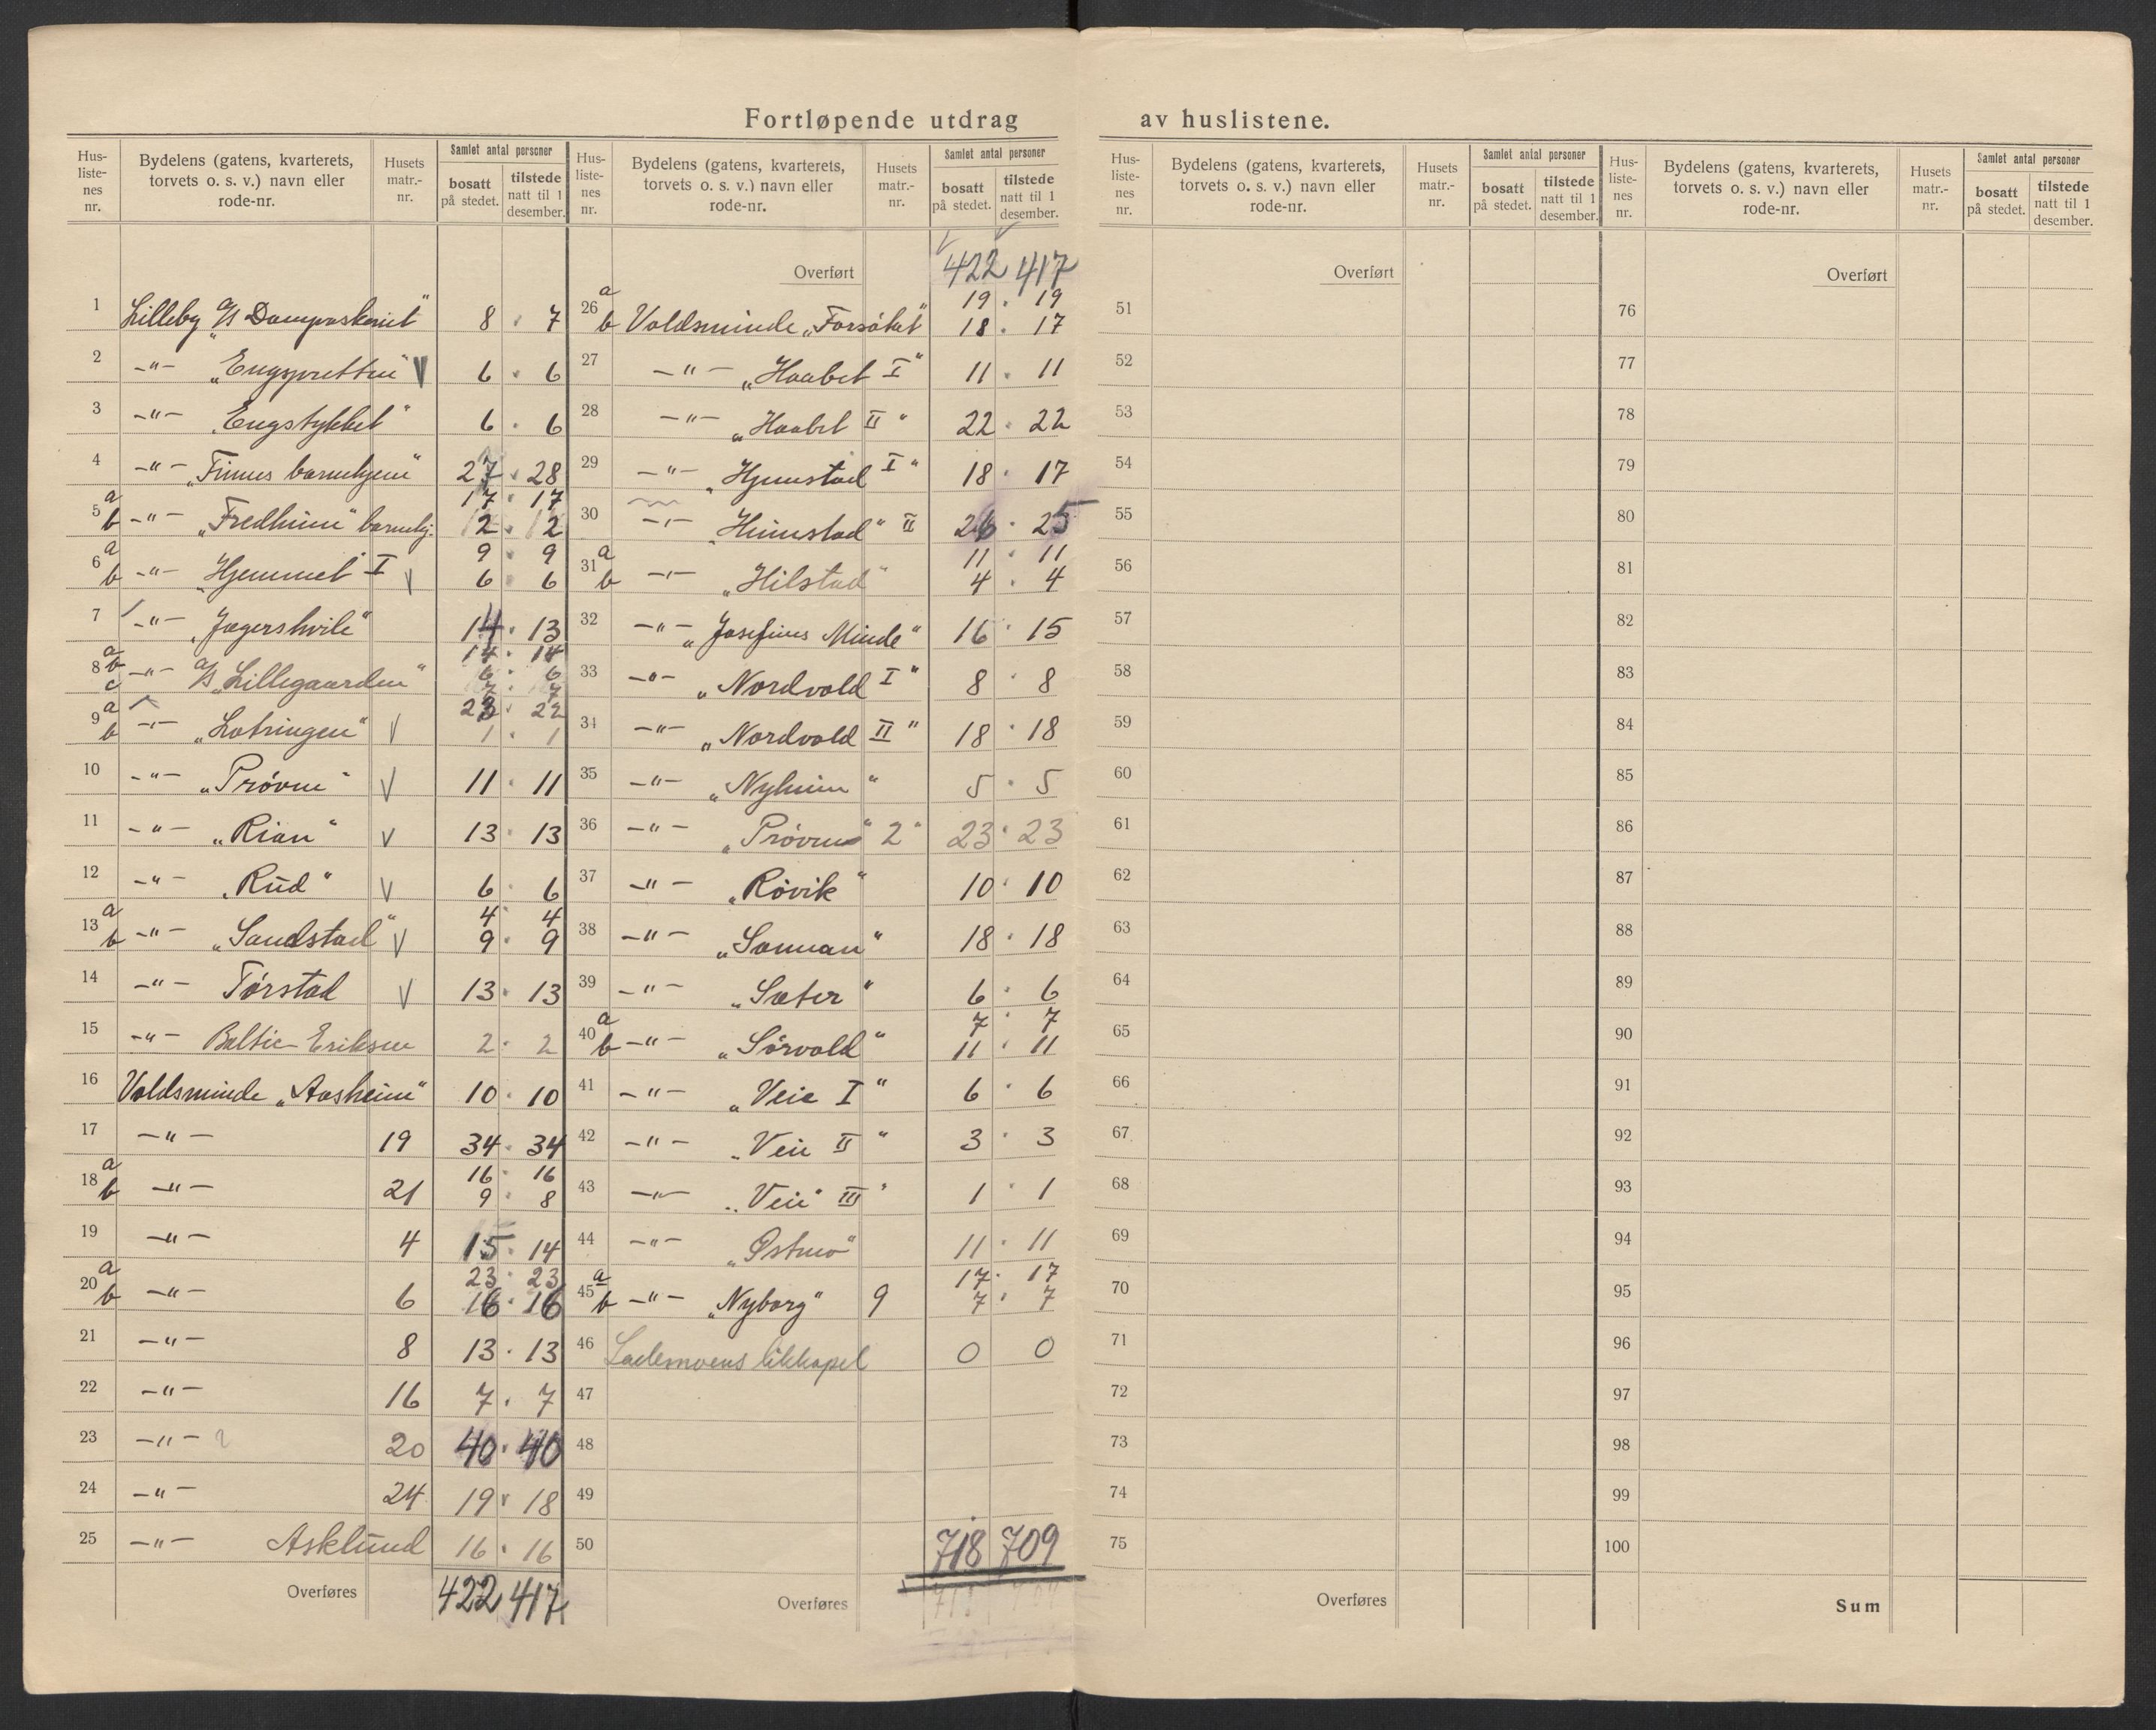 Fortløpende utdrag av huslistene.
Hus-listenes nr. Bydelens (gatens, kvarterets, torvets o. s. v.) navn eller rode-nr. Husets matr.-nr. Samlet antal personer bosatt på stedet. tilstede natt til 1 desember.
1 Lilleby A/S Dampvaskeriet" 8 7
2 -"- „Engsprettin" V 6 6
3 -"- „Engstykket" 6 6
4 -"- „Finnes barnehjem" 27 28
5 a 17 17
b -"- „Fredheim" barnehj. 2 2
6 a 9 9
b -"- „Hjemmet" I V 6 6
7 -"- „Jægershvile" 14 13
8 a 14 14
b -"- A/S „Lillegaarden" 6 6
c 7 7
9 a 23 22
b -"- „Lotringen" V 1 1
10 -"- „Prøven" V 11 11
11 -"- „Rian" V 13 13
12 -"- „Rud" V 6 6
13 a 4 4
b -"- „Sandstad" V 9 9
14 -"- Tørstad V 13 13
15 -"- Baltic-Eriksen 2 2
16 Voldsminde „Aasheim" 10 10
17 -"- 19 34 34
18 a 16 16
b -"- 21 9 8
19 -"- 4 15 14
20 a 23 23
b -"- 6 16 16
21 -"- 8 13 13
22 -"- 16 7 7
23 -"- 20 40 40
24 -"- 24 19 18
25 -"- Asklund 16 16
Overføres 422 417
Hus-listenes nr. Bydelens (gatens, kvarterets, torvets o. s. v.) navn eller rode-nr. Husets matr.-nr. Samlet antal personer bosatt på stedet. tilstede natt til 1 desember.
Overført 422 417
26 a 19 19
b Voldsminde „Forsøket" 18 17
27 -"- „Haabet I" 11 11
28 -"- „Haabet II" 22 22
29 -"- „Hjemstad I" 18 17
30 -"- „Heimstad" II 26 25
31 a 11 11
b -"- „Hilstad" 4 4
32 -"- „Josefines Minde" 16 15
33 -"- „Nordvold I" 8 8
34 -"- „Nordvold II" 18 18
35 -"- „Nyheim" 5 5
36 -"- „Prøven" 2" 23 23
37 -"- „Røvik" 10 10
38 -"- „Sannan" 18 18
39 -"- „Sæter" 6 6
40 a 7 7
b -"- „Sørvold" 11 11
41 -"- „Veie I" 6 6
42 -"- „Veie II" 3 3
43 -"- „Veie" III" 1 1
44 -"- „Østmo" 11 11
45 a 17 17
b -"- „Nyborg" 9 7 7
46 Lademoens likkapel 0 0
47
48
49
50 718 709
Overføres
Hus-listenes nr. Bydelens (gatens, kvarterets, torvets o. s. v.) navn eller rode-nr. Husets matr.-nr. Samlet antal personer bosatt på stedet. tilstede natt til 1 desember.
Overført
51
52
53
54
55
56
57
58
59
60
61
62
63
64
65
66
67
68
69
70
71
72
73
74
75
Overføres
Hus-listenes nr. Bydelens (gatens, kvarterets, torvets o. s. v.) navn eller rode-nr. Husets matr.-nr. Samlet antal personer bosatt på stedet. tilstede natt til 1 desember.
Overført
76
77
78
79
80
81
82
83
84
85
86
87
88
89
90
91
92
93
94
95
96
97
98
99
100
Sum